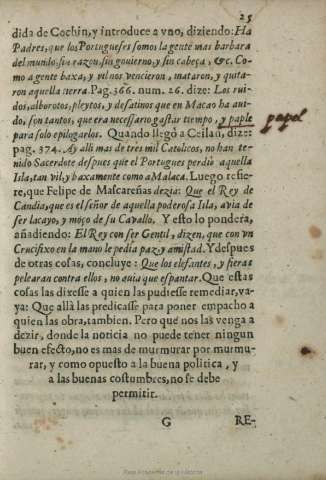 25
dida de Cochin, y introduce a vno, diziendo: Ha
Padres, que los Portugueses somos la gente mas barbara
del mundo, sin razon, sin gouierno, y sin cabeça, &c. Co-
mo a gente baxa, y vil nos vencieron, mataron, y quita-
ron aquella tierra. Pag. 366. num. 26. dize: Los rui-
dos, alborotos, pleytos, y desatinos que en Macao ha aui-
do, son tantos, que era necessario gastar tiempo, y paple papel
para solo epilogarlos. Quando llegò a Ceilan, dize:
pag. 374. Ay alli mas de tres mil Catolicos, no han te-
nido Sacerdote despues que el Portugues perdio aquella
Isla, tan vil, y baxamente como a Malaca. Luego refie-
re, que Felipe de Mascareñas dezia: Que el Rey de
Candia, que es el señor de aquella poderosa Isla, auia de
ser lacayo, y moço de su Cavallo. Y esto lo pondera,
añadiendo: El Rey con ser Gentil, dizen, que con vn
Crucifixo en la mano le pedia paz, y amistad. Y despues
de otras cosas, concluye: Que los elefantes, y fieras
pelearan contra ellos, no auia que espantar. Que estas
cosas las dixesse a quien las pudiesse remediar, va-
ya: Que allà las predicasse para poner empacho a
quien las obra, tambien. Pero que nos las venga a
dezir, donde la noticia no puede tener ningun
buen efecto, no es mas de murmurar por murmu-
rar, y como opuesto a la buena politica, y
a las buenas costumbres, no se debe
permitir.
G RE-
Real Academia de la Historia